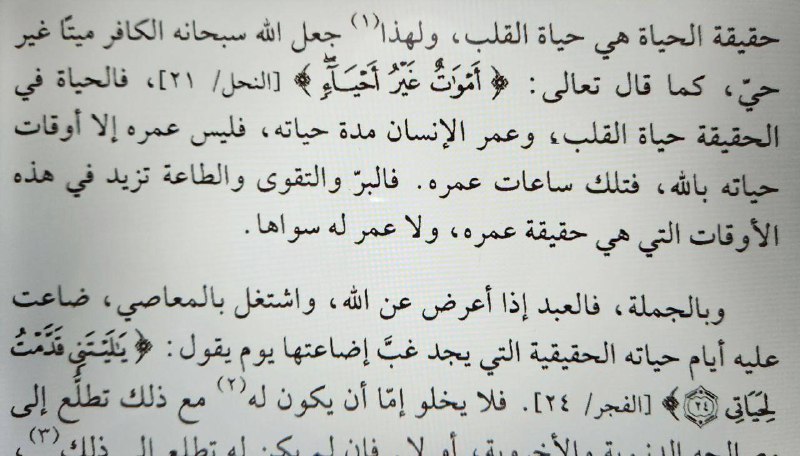 حقيقة الحياة هي حياة القلب، ولهذا(١) جعل الله سبحانه الكافر ميتًا غير
حيّ، كما قال تعالى: ﴿ أَمْوَاتٌ غَيْرُ أَحْيَاءٍ ﴾ [النحل/ ٢١]، فالحياة في
الحقيقة حياة القلب، وعمر الإنسان مدة حياته، فليس عمره إلا أوقات
حياته بالله، فتلك ساعات عمره. فالبرّ والتقوى والطاعة تزيد في هذه
الأوقات التي هي حقيقة عمره، ولا عمر له سواها.
وبالجملة، فالعبد إذا أعرض عن الله، واشتغل بالمعاصي، ضاعت
عليه أيام حياته الحقيقية التي يجد غبَّ إضاعتها يوم يقول: ﴿ يَٰلَيْتَنِي قَدَّمْتُ
لِحَيَاتِي ٢٤ ﴾ [الفجر/ ٢٤]. فلا يخلو إمّا أن يكون له(٢) مع ذلك تطلُّع إلى
مصالحه الدنيوية والأخروية، أو لا. فإن لم يكن له تطلع إلى ذلك(٣)،